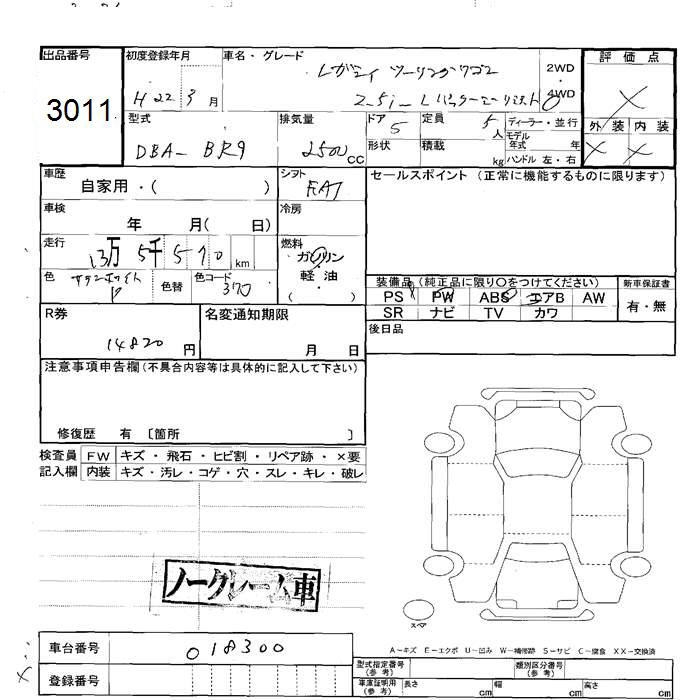 出品番号
初度登録年月
車名・グレード
評価点
3011
H22 3月
レガシィ ツーリングワゴン
2WD
・
4WD
2.5i Lパッケージリミテッド
外装 内装
型式
排気量
ドア
定員
ディーラー・並行
DBA-BR9
2500cc
5
5人
モデル
年式 年
形状
積載
kg
ハンドル 左・右
車歴
シフト
セールスポイント(正常に機能するものに限ります)
自家用・( )
FAT
車検
冷房
年 月( 日)
走行
燃料
13万 5千 5 7 0 km
ガソリン
・
軽油
( )
色
サテンホワイトP
色替
色コード
370
装備品(純正品に限り○をつけてください)
新車保証書
PS PW ABS エアB AW
有・無
SR ナビ TV カワ
R券
名変通知期限
後日品
14820円
月 日
注意事項申告欄(不具合内容等は具体的に記入して下さい)
修復歴 有 〔箇所 〕
検査員 FW キズ・飛石・ヒビ割・リペア跡・×要
記入欄 内装 キズ・汚レ・コゲ・穴・スレ・キレ・破レ
ノークレーム車
スペア
A-キズ E-エクボ U-凹み W-補修跡 S-サビ C-腐食 XX-交換済
車台番号
018300
型式指定番号
(参考)
類別区分番号
(参考)
登録番号
車庫証明用
(参考)
長さ cm
幅 cm
高さ cm